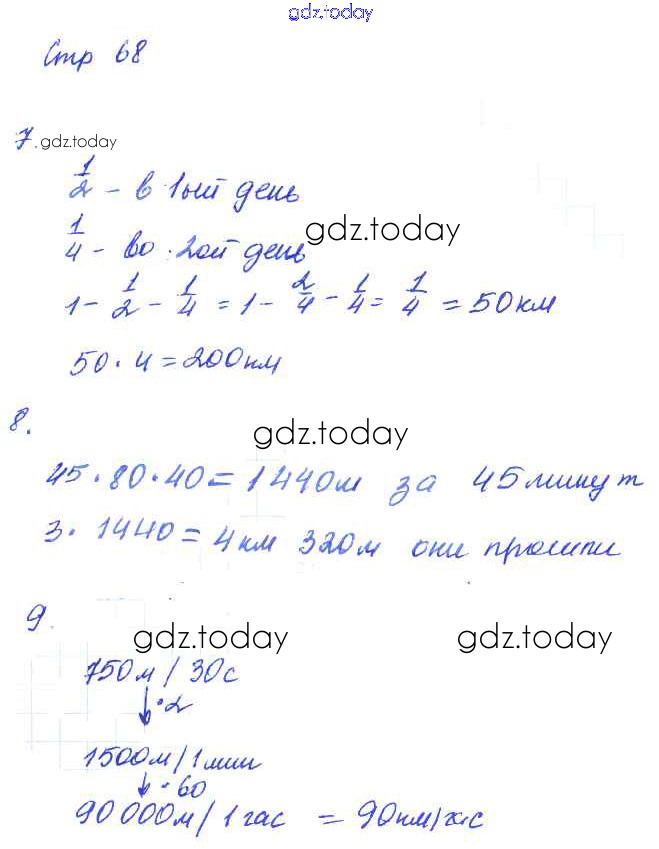 gdz.today
Стр 68
7. gdz.today
1/2 - в 1ый день
gdz.today
1/4 - во 2ой день
1 - 1/2 - 1/4 = 1 - 2/4 - 1/4 = 1/4 = 50км
50 · 4 = 200км
8.
gdz.today
45 · 80 · 40 = 1440м за 45 минут
3 · 1440 = 4км 320м они прошли
9.
gdz.today gdz.today
750м / 30с
↓ · 2
1500м / 1 мин
↓ · 60
90 000м / 1 час = 90км/час